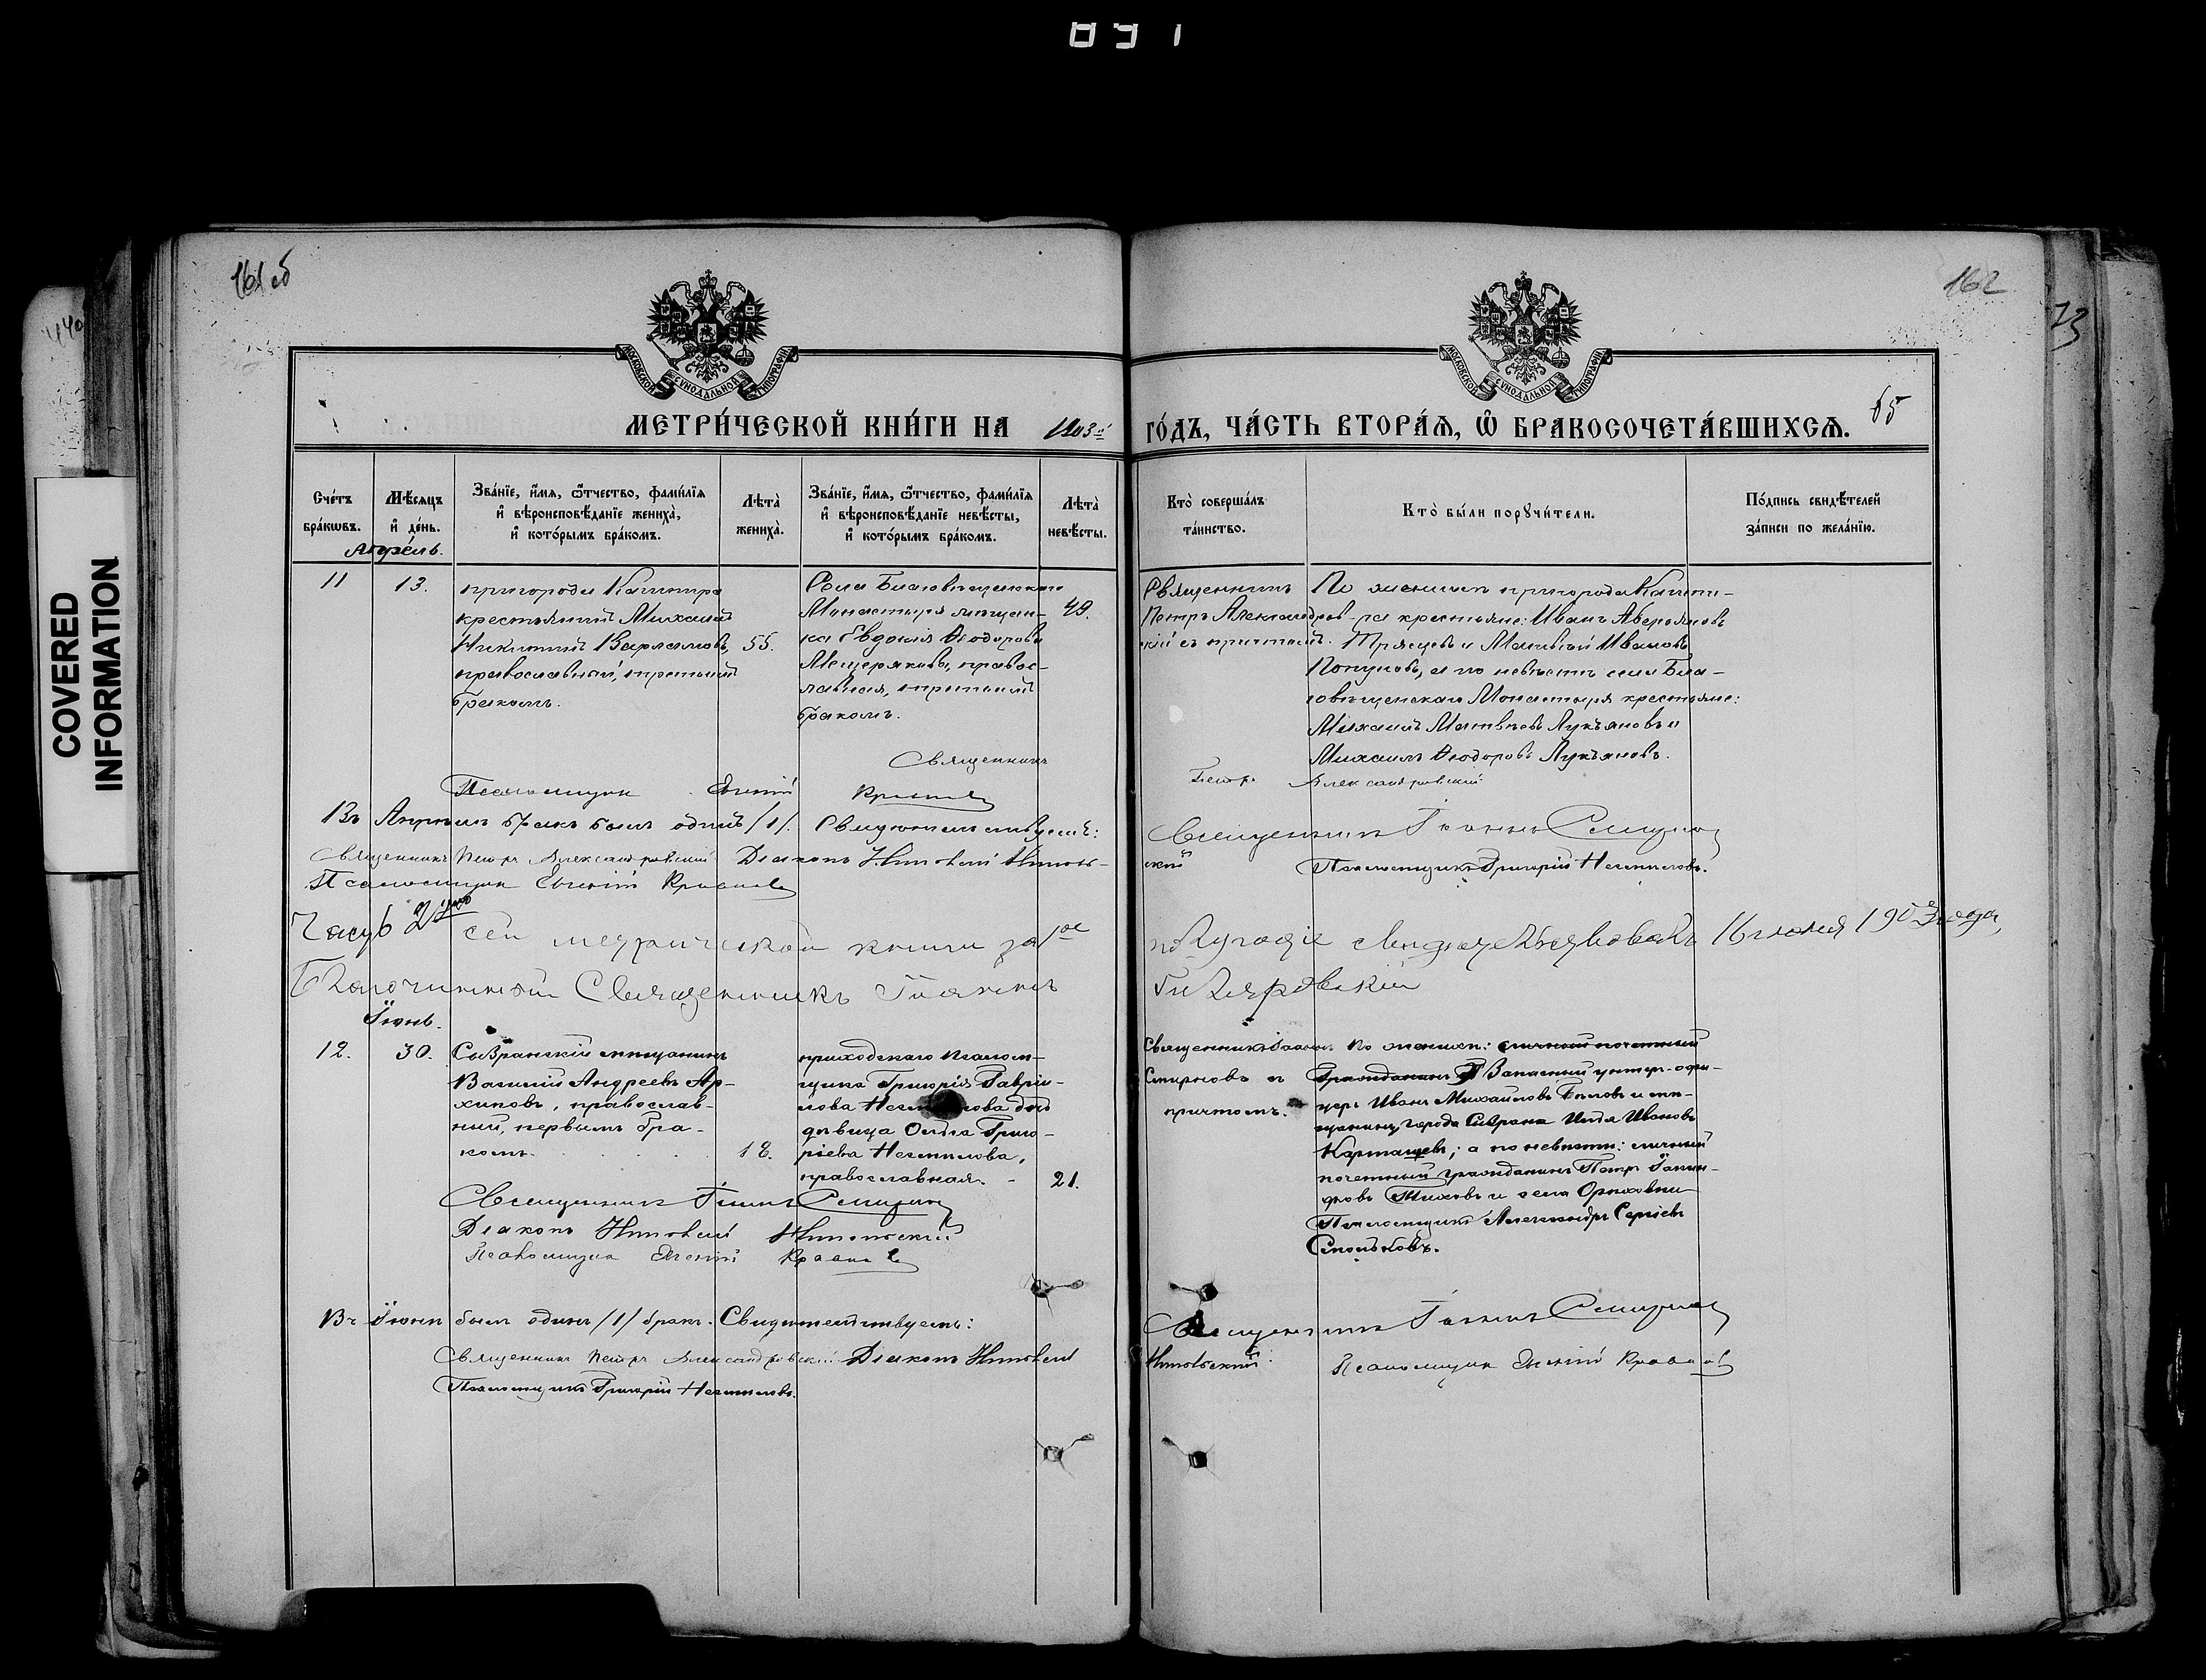 891
COVERED
INFORMATION
161 об
162
73
65
МОСКОВСКОЙ СѴНОДАЛЬНОЙ ТИПОГРАФІИ
МОСКОВСКОЙ СѴНОДАЛЬНОЙ ТИПОГРАФІИ
МЕТРИ́ЧЕСКОЙ КНИ́ГИ НА 1903й ГО́ДЪ, ЧА́СТЬ ВТОРА́Ѧ, Ѡ҆ БРАКОСОЧЕТА́ВШИХСѦ.
Сче́тъ
бра́кωвъ.
Мѣ́сѧцъ
и҆ де́нь.
Зва́нїе, и҆́мѧ, ѻ҆́тчество, фами́лїѧ
и҆ вѣроисповѣ́данїе жениха̀,
и҆ кото́рымъ бра́комъ.
Лѣ́та̀
жениха̀.
Зва́нїе, и҆́мѧ, ѻ҆́тчество, фами́лїѧ
и҆ вѣроисповѣ́данїе невѣ́сты,
и҆ кото́рымъ бра́комъ.
Лѣ́та̀
невѣ́сты.
Кто̀ соверша́лъ
та́инство.
Кто̀ бы́ли порꙋчи́тели.
По́дпись свидѣ́телей
за́писи по жела́нїю.
Апрѣль.
11
13.
пригорода Кашпира
крестьянинъ Михаилъ
Никитинъ Варламовъ,
православный, третьимъ
бракомъ.
55.
Села Благовѣщенскаго
Монастыря мѣщан-
ка Евдокія Ѳеодорова
Мещерякова, правос-
лавная, третьимъ
бракомъ.
49.
Священникъ
Петръ Александров-
скій съ причтомъ.
По женихѣ пригорода Кашпи-
ра крестьяне: Иванъ Аверьяновъ
Трясцевъ и Матвѣй Ивановъ
а по невѣстѣ села Бла-
говѣщенскаго Монастыря крестьяне:
Михаилъ Матвѣевъ Лукъяновъ и
Михаилъ Ѳеодоровъ Лукъяновъ.
Священникъ Петръ Александровскій
Псаломщикъ Евгеній
Въ Апрѣлѣ бракъ былъ одинъ /1/. Свидѣтельствуемъ: Священникъ Іоаннъ Смирнов
Священникъ Петръ Александровскій Діаконъ
Псаломщикъ Евгеній
Псаломщикъ Григорій
Часть 2ую сей метрической книги за 1ое полугодіе 16 іюля 1903 года,
Благочинный Священникъ Іоаннъ
Іюнь.
12.
30.
Сызранскій мѣщанинъ
Василій Андреевъ Ар-
хиповъ, православ-
ный, первымъ бра-
комъ.
18.
приходскаго псалом-
щика Григорія Гаврі-
лова дочь
дѣвица Ольга Григо-
ріева
православная.
21.
Священникъ Іоаннъ
Смирновъ съ
причтомъ.
По женихѣ: личный почетный
гражданинъ Запасный унтер-офи-
церъ Иванъ Михайловъ Бѣловъ и мѣ-
щанинъ города Сызрана Илья Ивановъ
Карташевъ; а по невѣстѣ: личный
почетный гражданинъ Петръ
и села
Псаломщикъ Александръ Сергіевъ
Священникъ Іоаннъ Смирнов
Діаконъ
Псаломщикъ Евгеній
Въ Іюнѣ былъ одинъ /1/ бракъ. Свидѣтельствуемъ: Священникъ Іоаннъ Смирнов
Священникъ Петръ Александровскій Діаконъ
Псаломщикъ Евгеній
Псаломщикъ Григорій